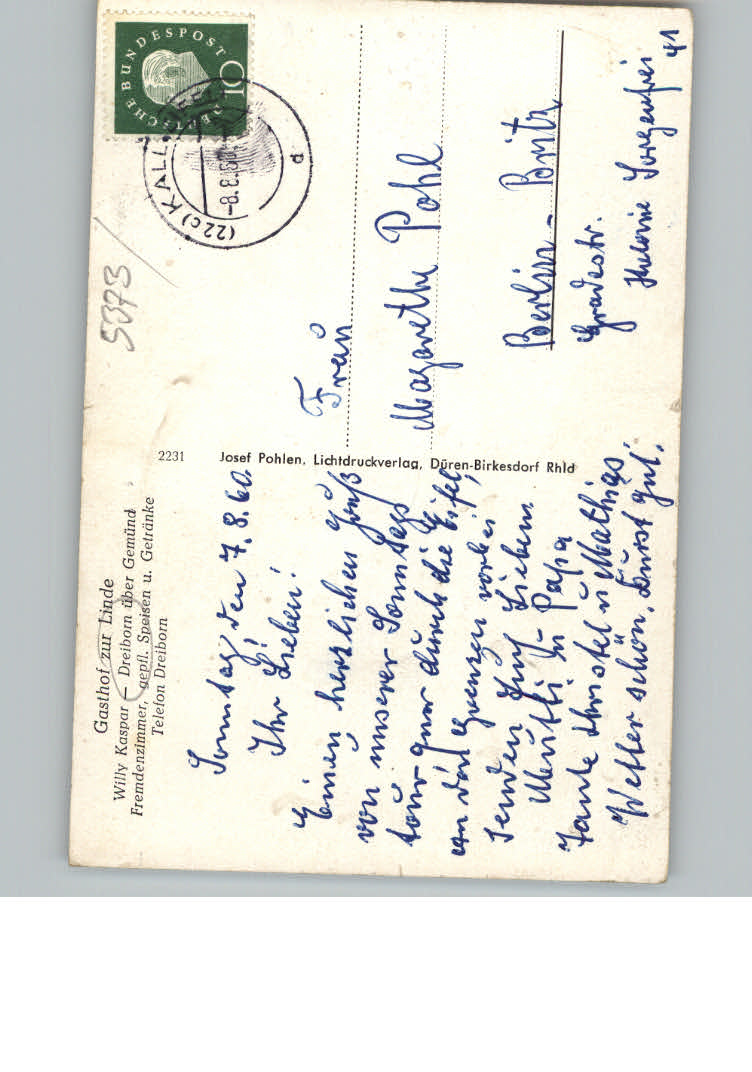 Gasthof zur Linde
Willy Kaspar – Dreiborn über Gemünd
Fremdenzimmer, gepfl. Speisen u. Getränke
Telefon Dreiborn
Sonntag, den 7.8.60.
Ihr Lieben!
Einen herzlichen Gruß
von unserer Sonntags
tour quer durch die Eifel,
an der Grenzen vorbei
senden Euch Lieben
Mutti u. Papa
Tante Christel u. Mathias.
Wetter schön, Durst gut.
2231
Josef Pohlen, Lichtdruckverlag, Düren-Birkesdorf Rhld
5373
DEUTSCHE BUNDESPOST
10
(22c) KALL
-8.8.60
d
Frau
Margarethe Pohl
Berlin - Britz
Gradestr. 41
Kolonie Sorgenfrei